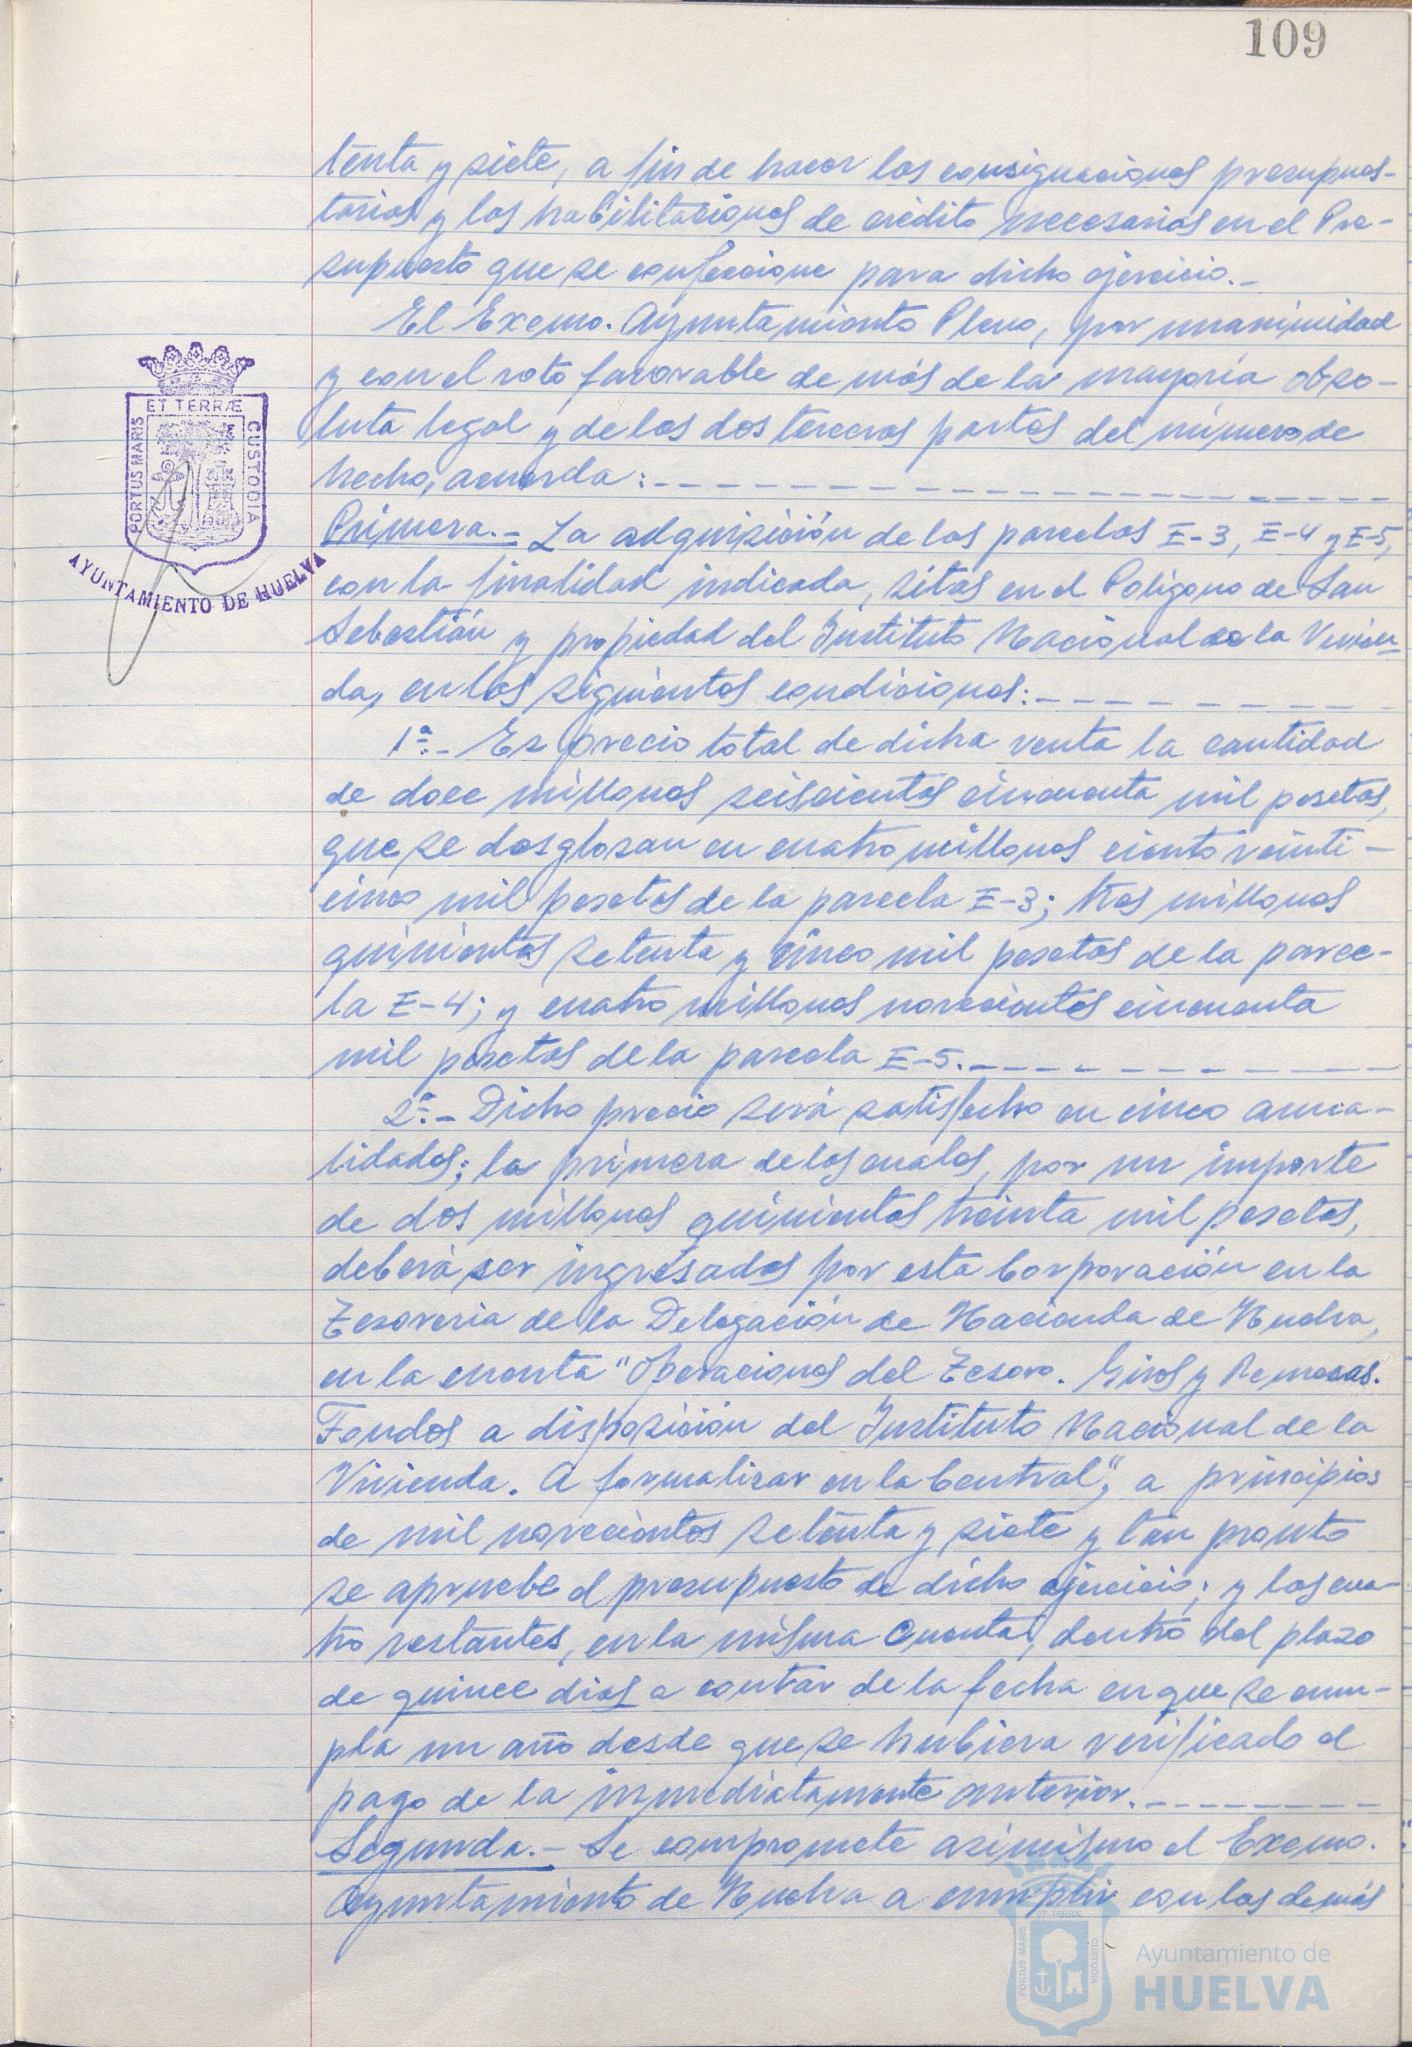 109
tenta y siete, a fin de hacer las consignaciones presupues-
tarias y las habilitaciones de crédito necesarias en el Pre-
supuesto que se confeccione para dicho ejercicio.-
El Excmo. Ayuntamiento Pleno, por unanimidad
y con el voto favorable de más de la mayoría abso-
luta legal y de las dos terceras partes del número de
hecho, acuerda:
Primera.- La adquisición de las parcelas E-3, E-4 y E-5,
con la finalidad indicada, sitas en el Polígono de San
Sebastián y propiedad del Instituto Nacional de la Vivien-
da, en las siguientes condiciones:
1ª.- Es precio total de dicha venta la cantidad
de doce millones seiscientas cincuenta mil pesetas,
que se desglosan en cuatro millones ciento veinti-
cinco mil pesetas de la parcela E-3; tres millones
quinientas setenta y cinco mil pesetas de la parce-
la E-4; y cuatro millones novecientas cincuenta
mil pesetas de la parcela E-5.
2ª.- Dicho precio será satisfecho en cinco anua-
lidades; la primera de las cuales, por un importe
de dos millones quinientas treinta mil pesetas,
deberá ser ingresados por esta Corporación en la
Tesorería de la Delegación de Hacienda de Huelva,
en la cuenta "Operaciones del Tesoro. Giros y Remesas.
Fondos a disposición del Instituto Nacional de la
Vivienda. A formalizar en la Central", a principios
de mil novecientos setenta y siete y tan pronto
se apruebe el presupuesto de dicho ejercicio; y las cua-
tro restantes, en la misma cuenta, dentro del plazo
de quince dias a contar de la fecha en que se cum-
pla un año desde que se hubiera verificado el
pago de la inmediatamente anterior.
Segunda.- Se compromete asimismo el Excmo.
Ayuntamiento de Huelva a cumplir con las demás
PORTUS MARIS ET TERRÆ CUSTODIA
AYUNTAMIENTO DE HUELVA
PORTUS MARIS ET TERRÆ CUSTODIA
Ayuntamiento de
HUELVA